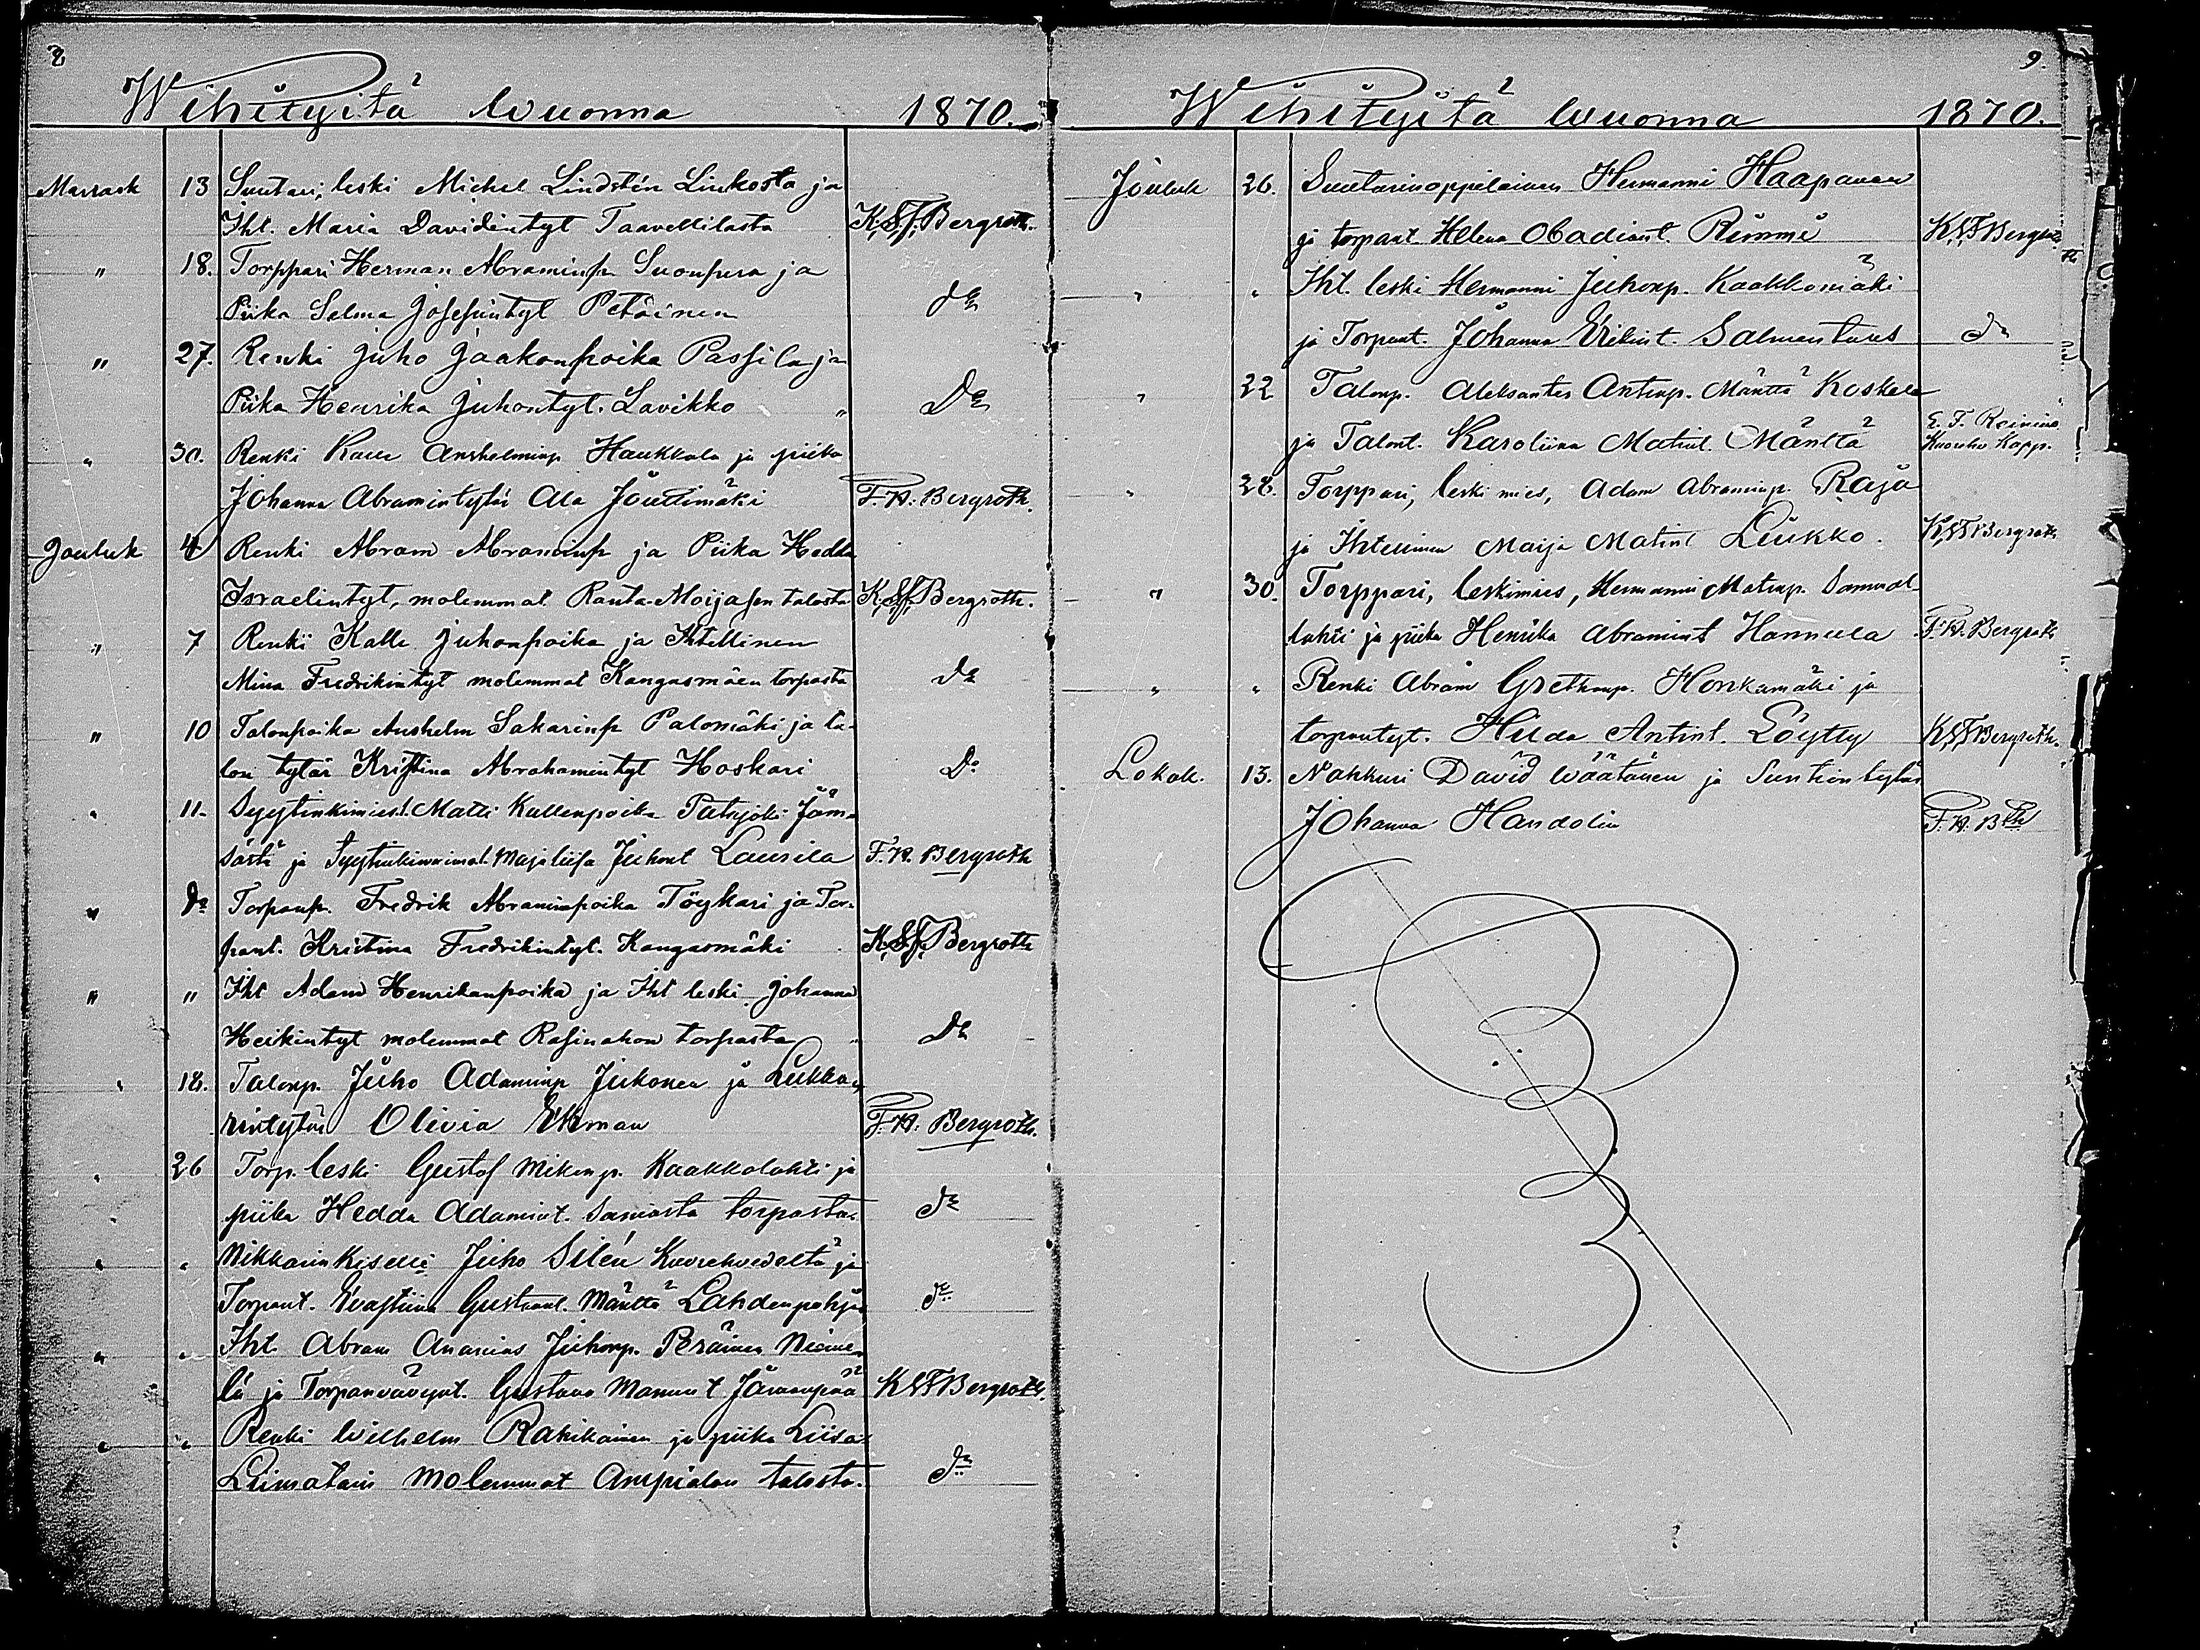 8
Wihityitä wuonna 1870.
Marrask 13 Suutari, leski Michel Lindstén Liukosta ja
Iht. Maria Davidintyt Taavettilasta K. S. F. Bergroth.
" 18. Torppari Herman Abraminp Suonpera ja
Piika Selma Josefintyt Petäinen do
" 27. Renki Juho Jaakonpoika Passila ja
Piika Henrika Juhontyt. Lavikko " Do
" 30. Renki Anshelminp Haukkala ja piika
Johanna Abramintytär Ala Jouttimäki F. H. Bergroth.
Jouluk 4 Renki Abram Abraminp ja Piika Hedda
Israelintyt, molemmat Ranta-Moijasen talosta K. S. F. Bergroth.
" 7 Renki Kalle Juhonpoika ja Ihtellinen
Mina Fredrikintyt molemmat Kangasmäen torpasta do
" 10 Talonpoika Anshelm Sakarinp Palomäki ja ta-
lon tytär Kristina Abrahamintyt Hoskari Do
" 11. Syytinkimies Matti Kallenpoika Patajoki Jäm-
sästä ja Majaliisa Juhont Lausila F. H. Bergroth
" do Torpanp. Fredrik Abraminpoika Töykari ja Tor-
pant. Kristina Fredrikintyt. Kangasmäki K. S. F. Bergroth
" " Iht Adam Henrikanpoika ja Iht leski Johanna
Heikintyt molemmat Rasinahon torpasta Do
" 18. Talonp. Juho Adaminp Jukonen ja Lukka-
rintytär Olivia Ekman F. H. Bergroth.
" 26 Torp. leski Gustaf Mikonp. Kaakkolahti ja
piika Hedda Adamint. samasta torpasta. do
" " Nikkarinkiselli Juho Silén Kuorehvedeltä ja
Torpant. Evastiina Gustavint. Mänttä Lahdenpohja do
" " Iht. Abram Ananias Juhonp. Peräinen Nieme-
lä ja Gustava Manunt Jämsänpää K S F Bergroth.
" " Renki Wilhelm Rahikainen ja piika Liisa
Liimatain molemmat Ampialan talosta. do
9.
Wihityitä wuonna 1870.
Jouluk 26. Suutarinoppilainen Hermanni Haapanen
ja torpant Helena Obadiant. Rimmi K S F Bergroth
" " Iht. leski Hermanni Juhonp. Kaakkomäki
ja Torpant. Johanna Erikint. Salmentaus do
" 22 Talonp. Aleksanter Antinp. Mänttä Koskela
ja Talont. Karoliina Matint. Mänttä E. F. Reinius Kuorehv Kapp.
" 28. Torppari, leskimies, Adam Abraminp. Raja
ja Ihtellinen Maija Matint Liukko. K S F Bergroth
" 30. Torppari, leskimies, Hermanni Matinp. Samual-
lahti ja piika Henrika Abramint Hannula F. H. Bergroth
" " Renki Abram Honkamäki ja
torpantyt. Hilda Antint. Löytty K S F Bergroth.
Lokak. 13. Nahkuri David Wäätänen ja Suntion tytär
Johanna Handolin F. H. Bth